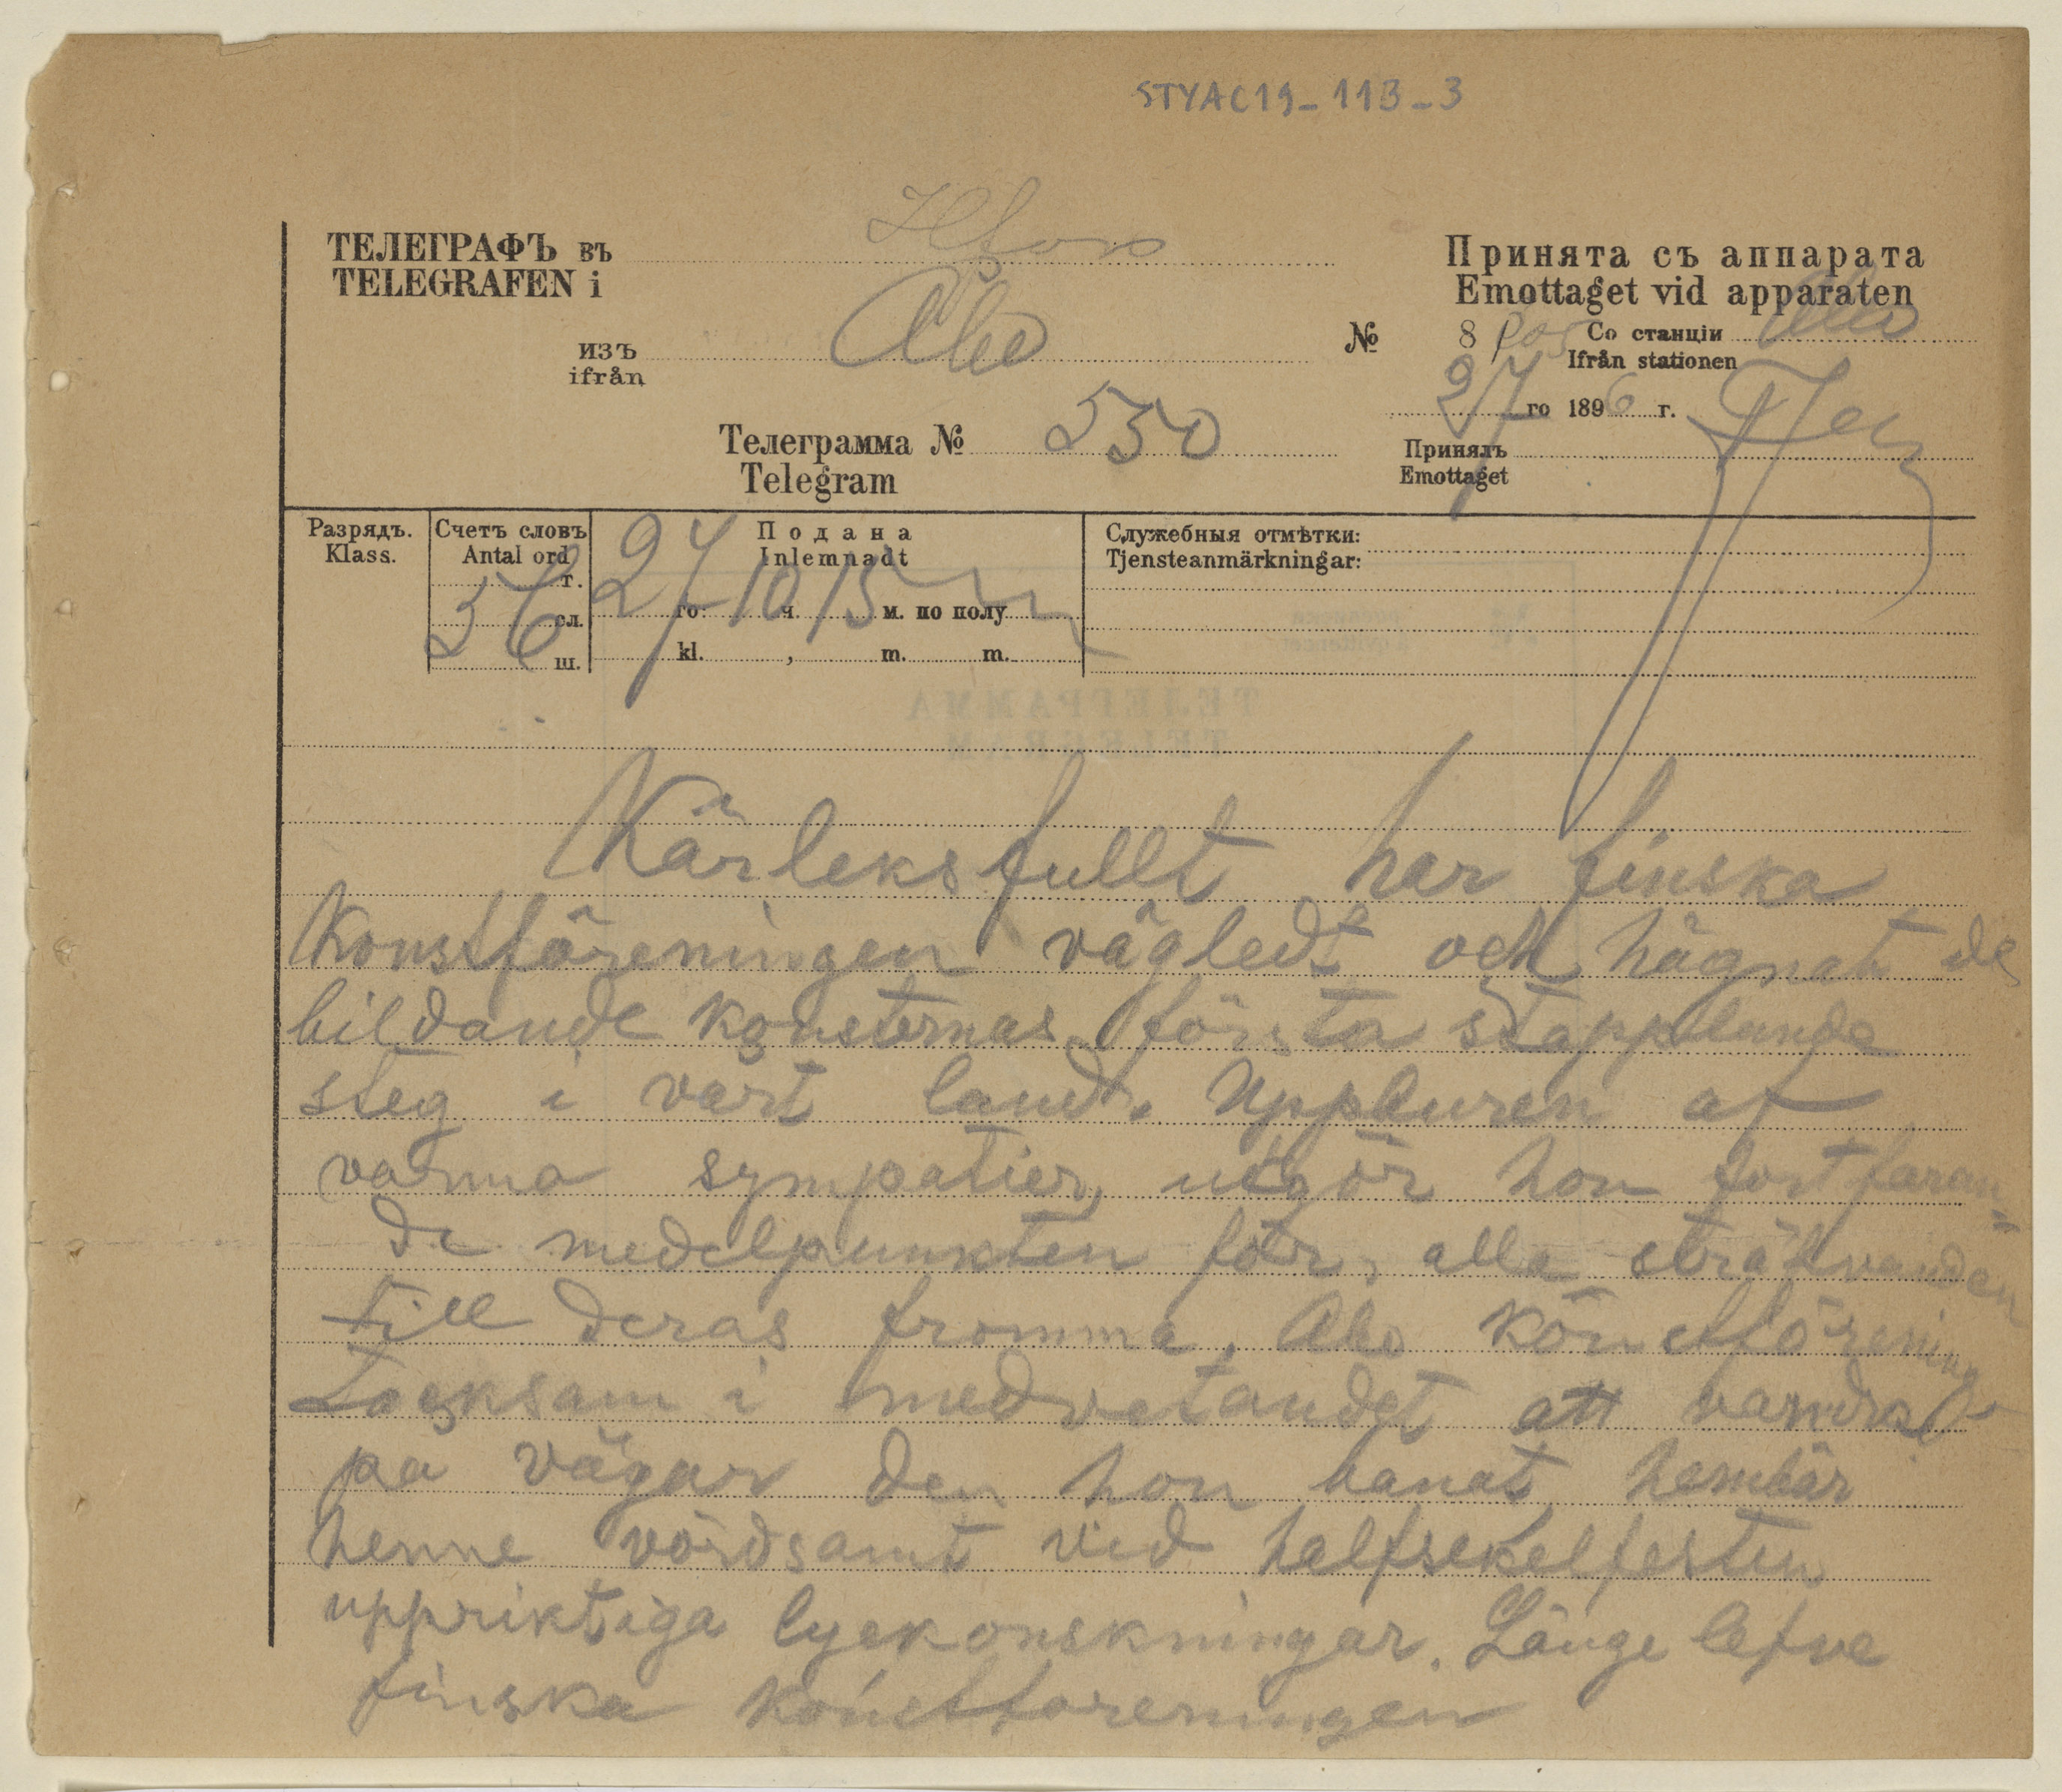 STYAC19_113_3
ТЕЛЕГРАФЪ въ Hfors
TELEGRAFEN i
изъ Åbo
ifrån
Телеграмма № 550
Telegram
Принята съ аппарата
Emottaget vid apparaten
№ 8 Со станціи Åbo
Ifrån stationen
27 го 1896 г.
Принялъ
Emottaget
Разрядъ.
Klass.
Счетъ словъ
Antal ord
г.
56 сл.
ш.
Подана
Inlemnadt
27 го 10 ч. 15 м. по полу
kl. , m. m.
Служебныя отмѣтки:
Tjensteanmärkningar:
Kärleksfullt har finska
Konstföreningen vägledt och hägnat de
bildande konsternas första stapplande
steg i vart land. Uppburen af
varma sympatier, utgör hon fortfaran=
de medelpunkten för, alla sträfvanden
till deras fromma. Abo Könstförening
Tacksam i medvetandet att vandra
pa vägar den hon banat hembär
henne vördsamt vid halfsekelfesten
uppriktiga lyckonskningar. Länge lefve
finska konstforeningen